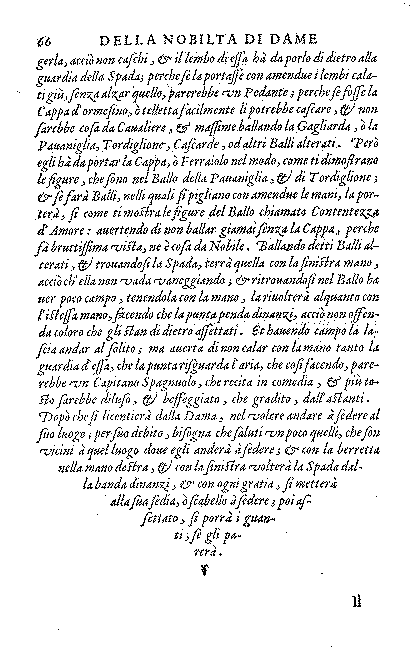 66 DELLA NOBILTA DI DAME
gerla, acciò non caschi, & il lembo di essa hà da porlo di dietro alla
guardia della Spada; perche se la portasse con amendue i lembi cala-
ti giù, senza alzar quello, parerebbe vn Pedante; perche se fosse la
Cappa d'ormesino, ò telletta facilmente li potrebbe cascare, & non
sarebbe cosa da Caualiere, & massime ballando la Gagliarda, ò la
Pauaniglia, Tordiglione, Cascarde, od altri Balli alterati. Però
egli hà da portar la Cappa, ò Ferraiolo nel modo, come ti dimostrano
le figure, che sono nel Ballo della Pauaniglia, & di Tordiglione;
& se farà Balli, nelli quali si pigliano con amendue le mani, la por-
terà, si come ti mostra le figure del Ballo chiamato Contentezza
d'Amore: auertendo di non ballar giamai senza la Cappa, perche
fà bruttissima vista, ne è cosa da Nobile. Ballando detti Balli al-
terati, & trouandosi la Spada, terrà quella con la sinistra mano,
acciò ch'ella non vada vaneggiando; & ritrouandosi nel Ballo ha
uer poco campo, tenendola con la mano, la riuolterà alquanto con
l'istessa mano, facendo che la punta penda dinanzi, acciò non offen-
da coloro che gli stan di dietro assettati. Et hauendo campo la la-
scia andar al solito; ma auerta di non calar con la mano tanto la
guardia d'essa, che la punta risguarda l'aria, che così facendo, pare-
rebbe vn Capitano Spagnuolo, che recita in comedia, & più to-
sto sarebbe diluso, & beffeggiato, che gradito, dall'astanti.
Dopò che si licentierà dalla Dama, nel volere andare à sedere al
suo luogo; per suo debito, bisogna che saluti vn poco quelli, che son
vicini à quel luogo doue egli anderà à sedere; & con la berretta
nella mano destra, & con la sinistra volterà la Spada dal-
la banda dinanzi, & con ogni gratia, si metterà
alla sua sedia, ò scabello à sedere; poi as-
settato, si porrà i guan-
ti, se gli pa-
rerà.
Il